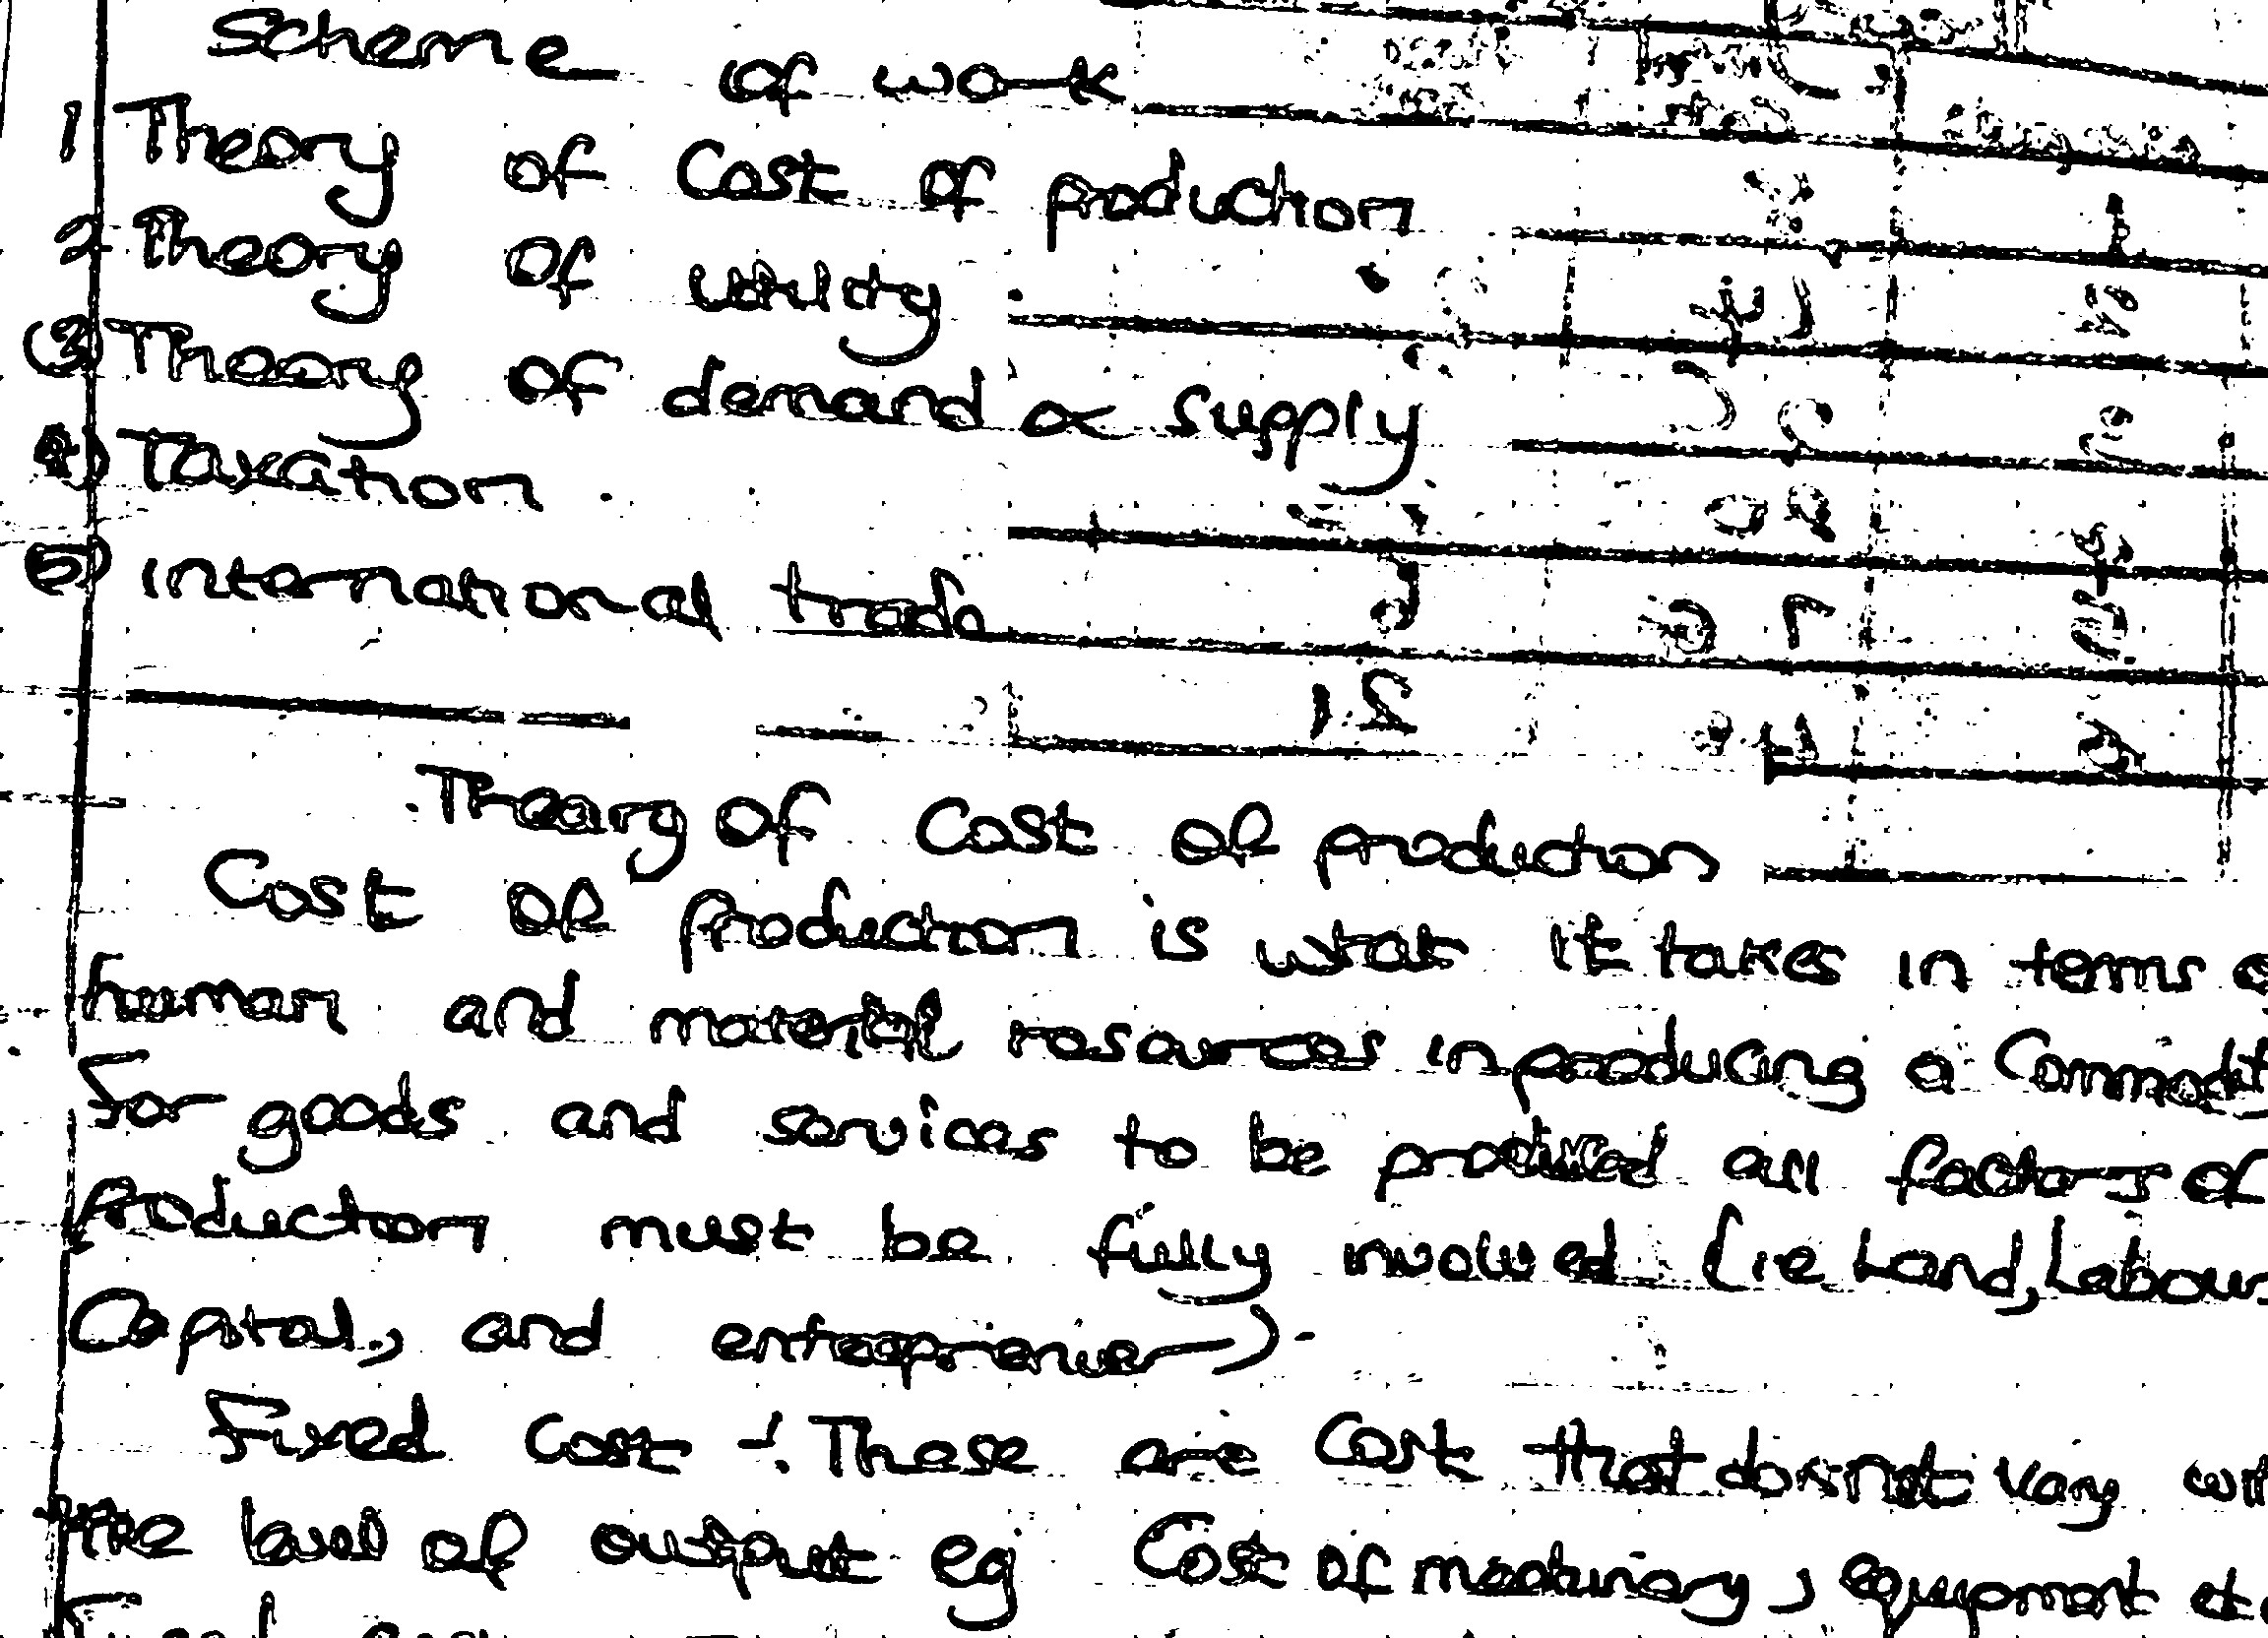 Scheme of work
1 Theory of Cost of production
2 Theory of utility
(3) Theory of demand & supply
(4) Taxation
(5) international trade
Theory of Cost of production
Cost of production is what it takes in terms
human and material resources in producing a Commodit
For goods and services to be produced all factors of
production must be fully involved (ie Land, Labour
Capital, and entrepreneur).
Fixed Cost :- These are Cost that does not vary wit
the level of output eg Cost of machinery, equipment etc